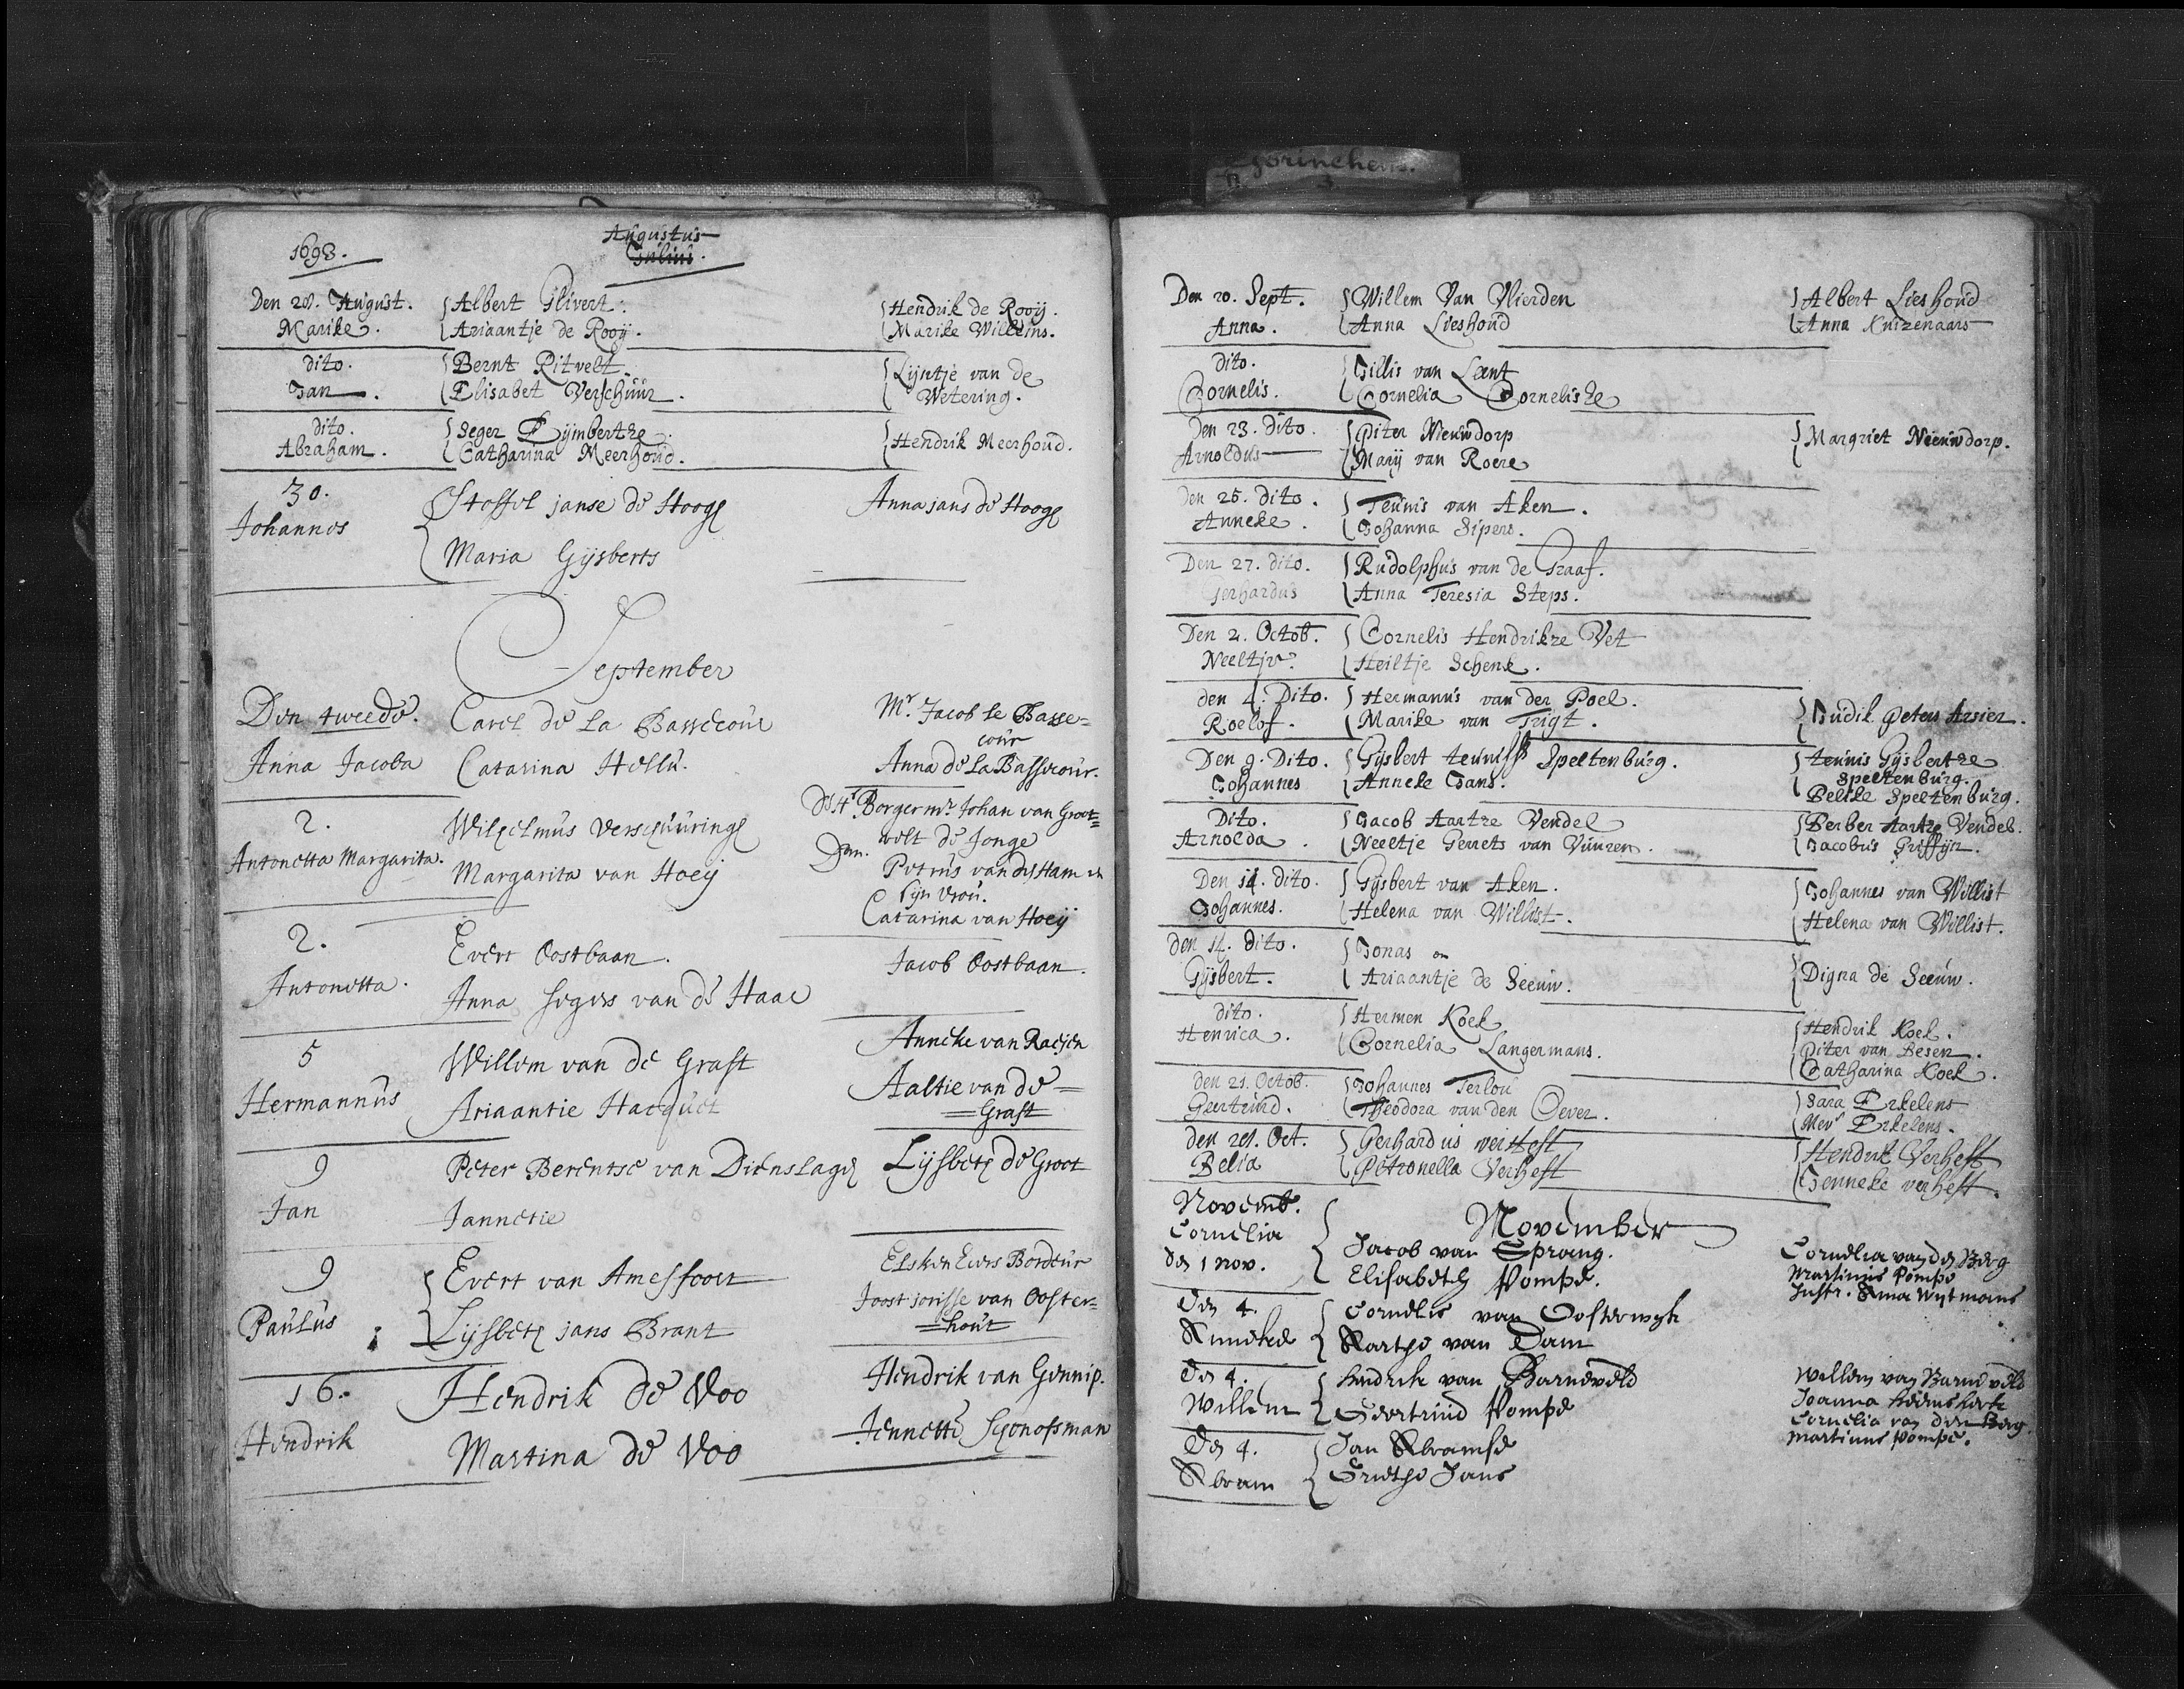 Gorinchem.
3
1698.
Augustus
Julius.
Den 28. August. Albert Glivert. Hendrik de Rooij.
Marike. Ariaantje de Rooij. Marike Willems.
dito. Bernt Ritvelt. Lijntje van de
Jan. Elisabet Verschuur. Wetering.
dito. Seger Eijmbertze. Hendrik Meerhoud.
Abraham. Catharina Meerhoud.
30. Stoffel janse de Hooge Anna jans de Hooge
Johannes
Maria Gijsberts
September
Den tweede. Carel de La Bassecour Mr. Jacob Le Basse=
cour
Anna Jacoba Catarina Hellu. Anna de La Bassecour.
2. Wilhelmus Verschuuringh Borgermr. Johan van Groot=
velt de Jonge
Antonetta Margarita. Margarita van Hoeij Petrus van der Ham en
sijn vrou.
Catarina van Hoeij
2. Evert Oostbaan. Jacob Oostbaan.
Antonetta. Anna Segers van de Haar
5 Willem van de Graft Anneke van Raeijen
Hermannus Ariaantie Hacquet Aaltie van de=
=Graft
9 Peter Berentse van Dienslage Lijsbeth de Groot
Jan Jannetie
9 Evert van Amesfoort Elsken Evers Bordeur
Paulus Lijsbeth jans Brant Joost jorisse van Ooster=
=hout
16. Hendrik de Voo Hendrik van Gennip.
Hendrik Martina de Voo Jennette Schonofsman
Den 20. Sept. Willem Van Vlierden Albert Lieshoud
Anna. Anna Lieshoud Anna Kuizenaars
dito. Gillis van Lent
Cornelis. Cornelia Cornelisze
Den 23. dito. Piter Nieuwdorp Margriet Nieuwdorp.
Arnoldus Marij van Roere
Den 25. dito. Teunis van Aken.
Anneke. Johanna Sipers.
Den 27. dito. Rudolphus van de Graaf.
Gerhardus Anna Teresia Steps.
Den 2. Octob. Cornelis Hendrikze Vet
Neeltje. Heiltje Schenk.
den 4. Dito. Hermanus van der Poel. Judik Peters
Roelof. Marike van Trigt.
Den 9. Dito. Gijsbert teuniss Speltenburg. teunis Gijsbertze
Speltenburg.
Johannes Anneke Jans. Belike Speltenburg.
Dito. Jacob Aartze Vendel Berber Aartze Vendel.
Arnolda. Neeltje Gerrets van Vuuren. Jacobus Griffijn.
Den 14. dito. Gijsbert van Aken. Johannes van Willist
Johannes. Helena van Willist. Helena van Willist.
den 14. dito. Jonas en Digna de Seeuw.
Gijsbert. Ariaantje de Seeuw.
dito. Hermen Koek Hendrik Koek.
Henrica. Cornelia Langermans. Piter van Besen.
Catharina Koek.
den 21. Octob. Johannes Terlou Sara Erkelens
Geertruid. Theodora van den Oever. Mevr Erkelens.
den 21. Oct. Gerhardus verheft Hendrik Verheft
Belia Petronella Verheft Jenneke verheft.
Novemb. November
Cornelia Jacob van Sprang. Cornelia van den Berg
den 1 nov. Elisabeth Pompe. Martinus Pompe
Jufr. Anna Wijtmans
Den 4. Cornelis van Oosterwijk
Anneke Aartje van Dam
Den 4. Hendrik van Barneveld Willem van Barneveld
Willem Geertruid Pompe Joanna Heemskerk
Cornelia van den Berg
Martinus Pompe.
Den 4. Jan Abramse
Abram Grietje Jans